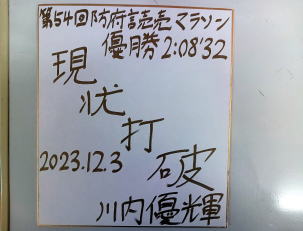 第54回防府読売マラソン
優勝 2:08'32
現状打破
2023.12.3
川内優輝